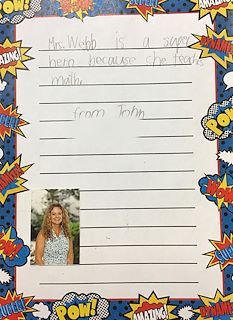 POW!
AMAZING!
DYNAMITE
Mrs. Webb is a super
hero because she teachs
math.
from John
POW!
WOW!
SUPER!
POW!
AMAZING!